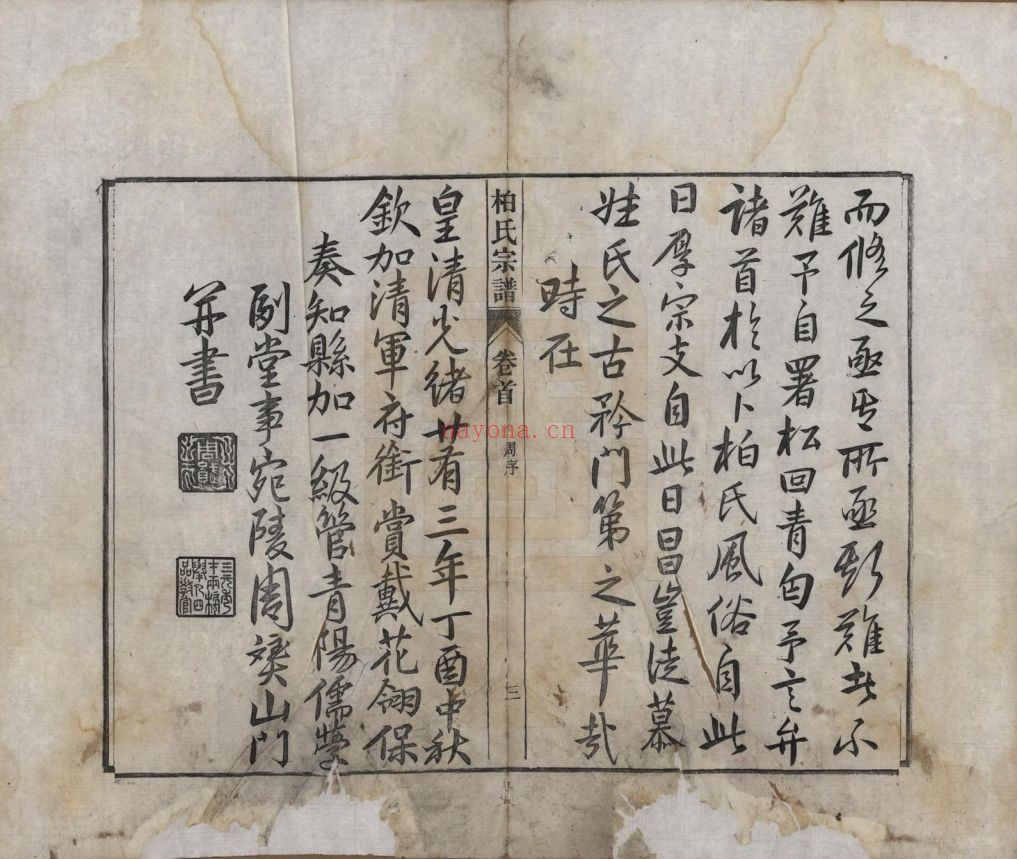 而修之亟其所亟斯難者不
難予自署松回青勾予言弁
諸首於以卜柏氏風俗自此
日厚宗支自此日昌豈徒慕
姓氏之古矜門第之華哉
時在
柏氏宗譜 卷首 周序 三
皇清光緒廿有三年丁酉中秋
欽加清軍府銜賞戴花翎保
奏知縣加一級管青陽儒學
副堂事宛陵周贇山門
并書
nayona.cn